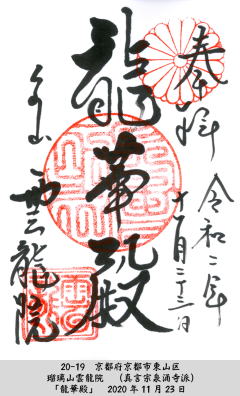 奉拝
令和二年
十一月二十三日
龍華殿
泉山
雲龍院
20-19 京都府京都市東山区
瑠璃山雲龍院 （真言宗泉涌寺派）
「龍華殿」 2020年11月23日